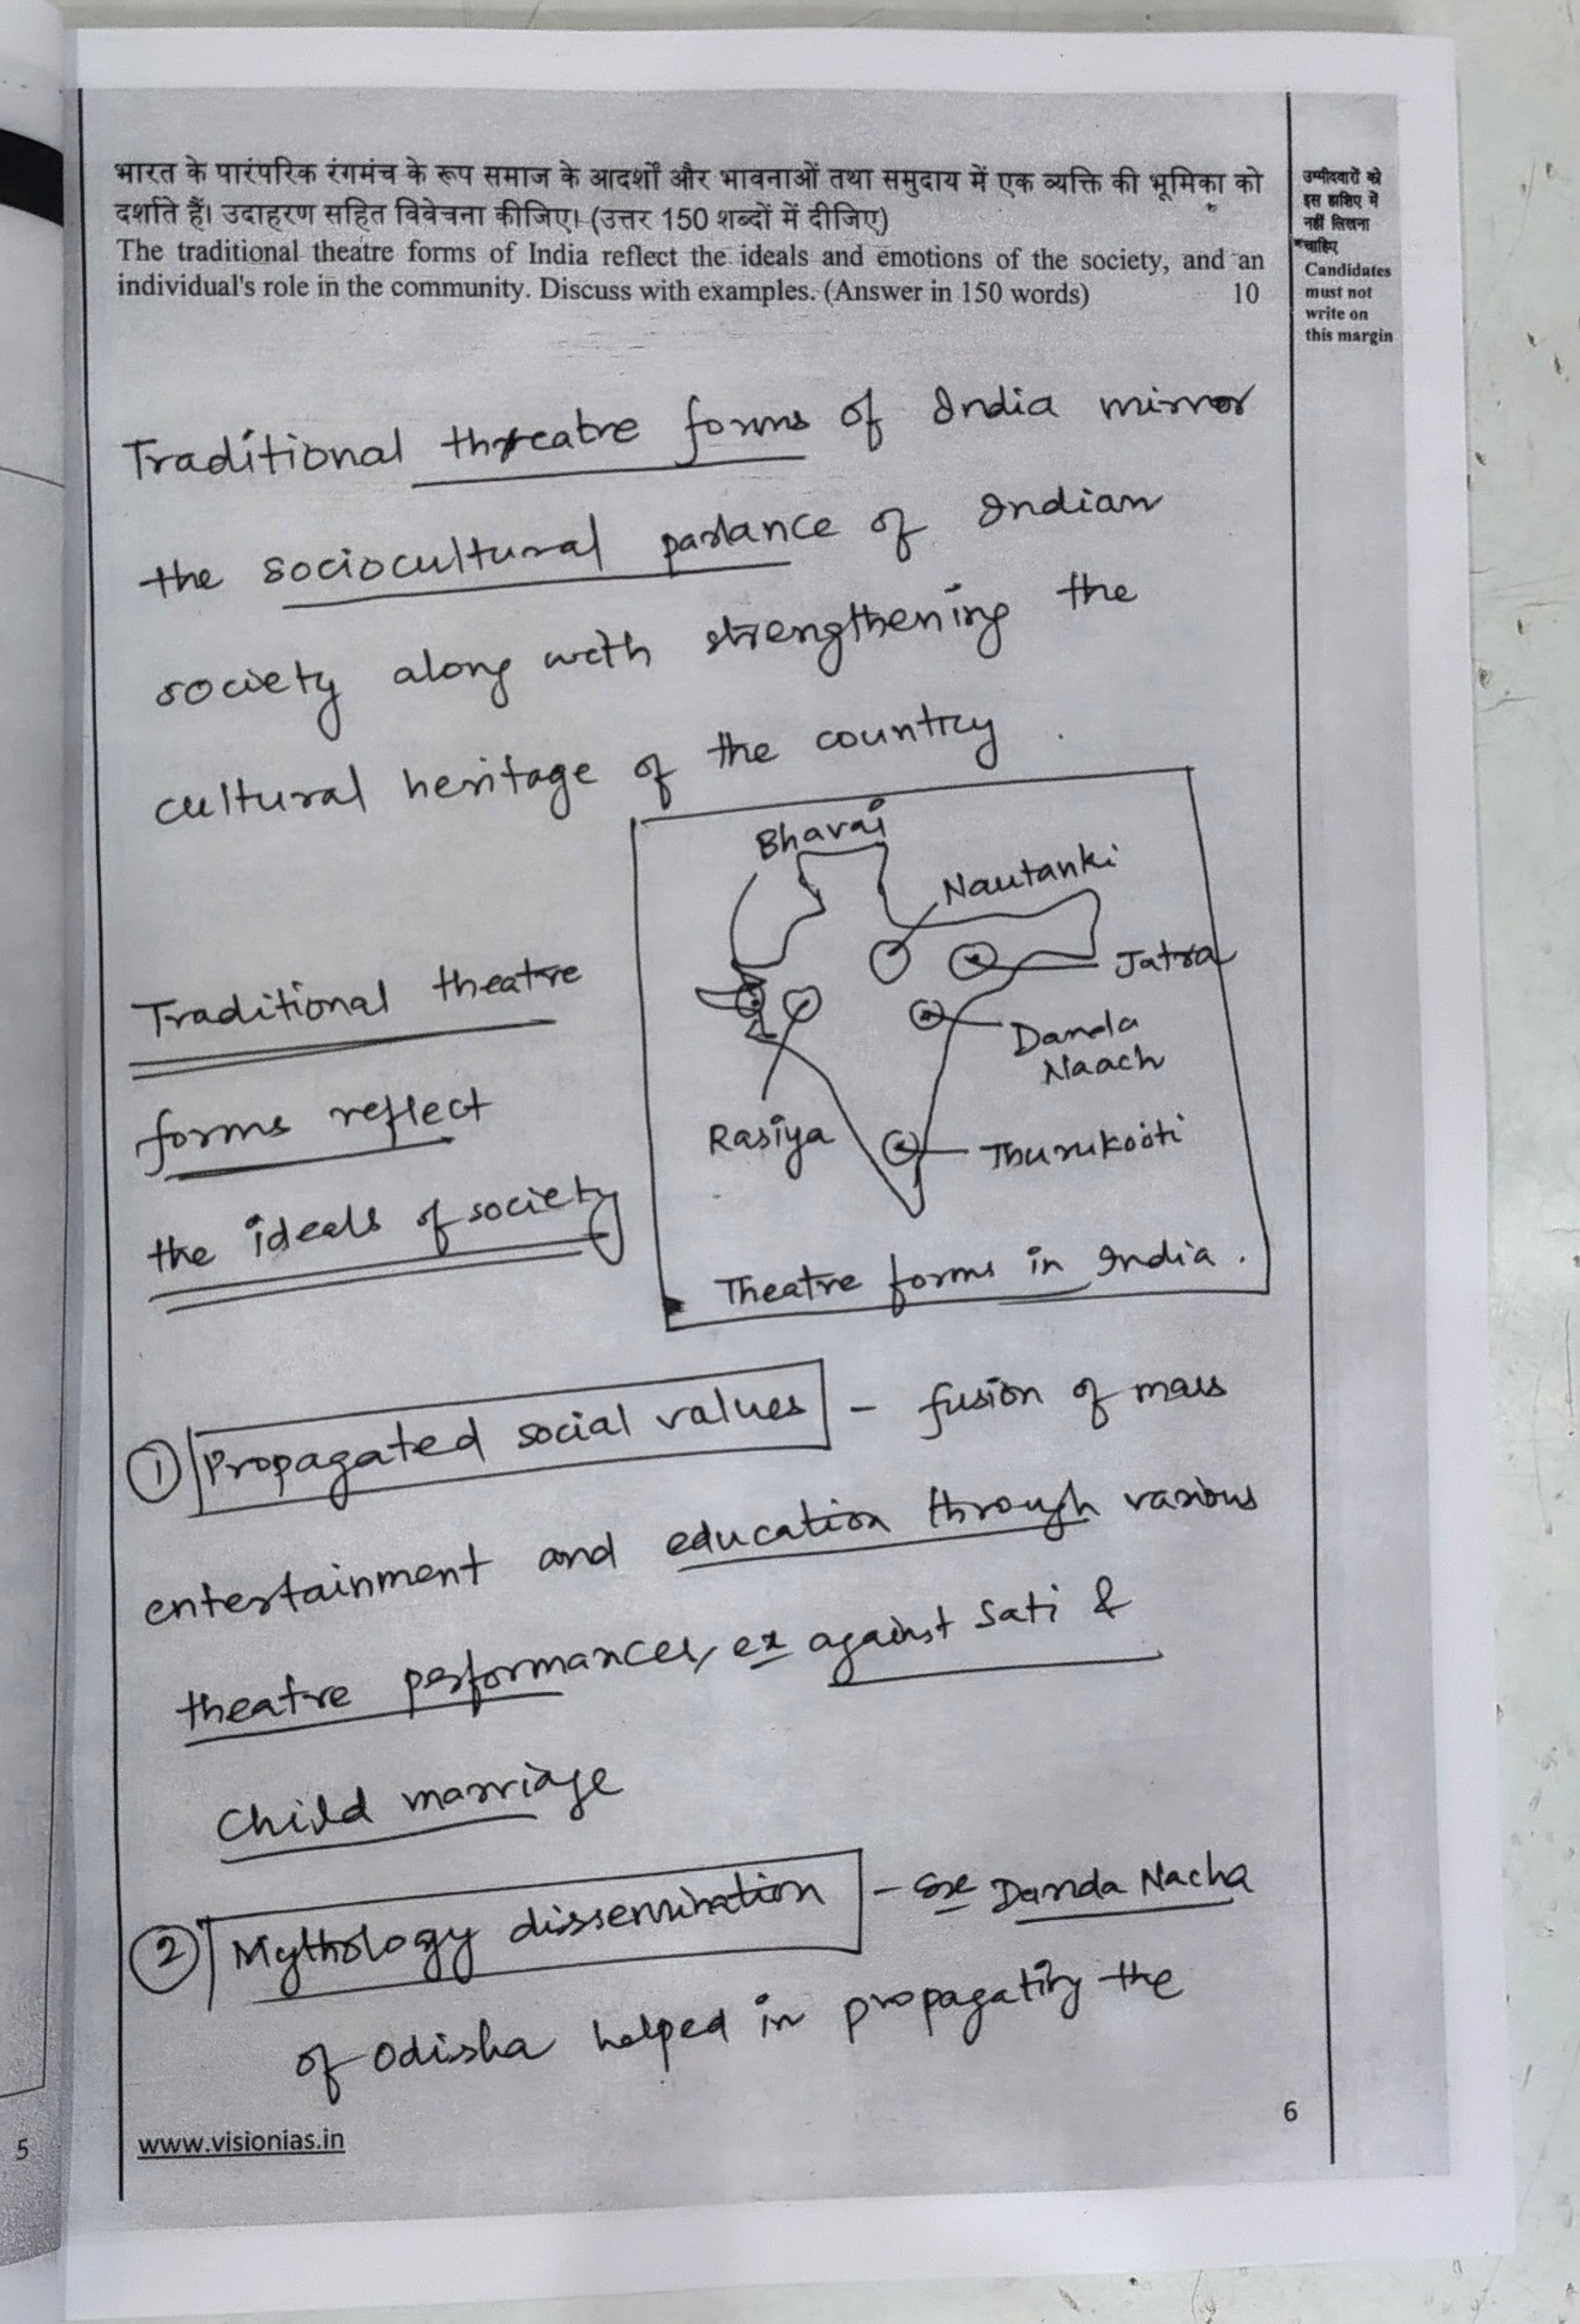 भारत के पारंपरिक रंगमंच के रूप समाज के आदर्शों और भावनाओं तथा समुदाय में एक व्यक्ति की भूमिका को
दर्शाते हैं। उदाहरण सहित विवेचना कीजिए। (उत्तर 150 शब्दों में दीजिए)
The traditional theatre forms of India reflect the ideals and emotions of the society, and an
individual's role in the community. Discuss with examples. (Answer in 150 words) 10
उम्मीदवारों को
इस हाशिए में
नहीं लिखना
चाहिए
Candidates
must not
write on
this margin
Traditional theatre forms of India mirror
the sociocultural parlance of Indian
society along with strengthening the
cultural heritage of the country.
Bhavai
Nautanki
Jatra
Danda
Naach
Rasiya
Thurukooti
Theatre forms in India.
Traditional theatre
forms reflect
the ideals of society
① Propagated social values - fusion of mass
entertainment and education through various
theatre performances, ex against Sati &
Child marriage
② Mythology dissemination - Ex Danda Nacha
of Odisha helped in propagating the
www.visionias.in
6
5